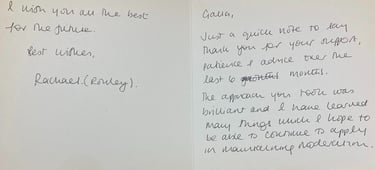 Just a quick note to say
thank you for your support,
patience & advice over the
last 6 months.
The approach you took was
brilliant and I have learned
many things which I hope to
be able to continue to apply
in maintaining moderation.
I wish you all the best
for the future.
Best wishes,
Rachael. (Rowley).